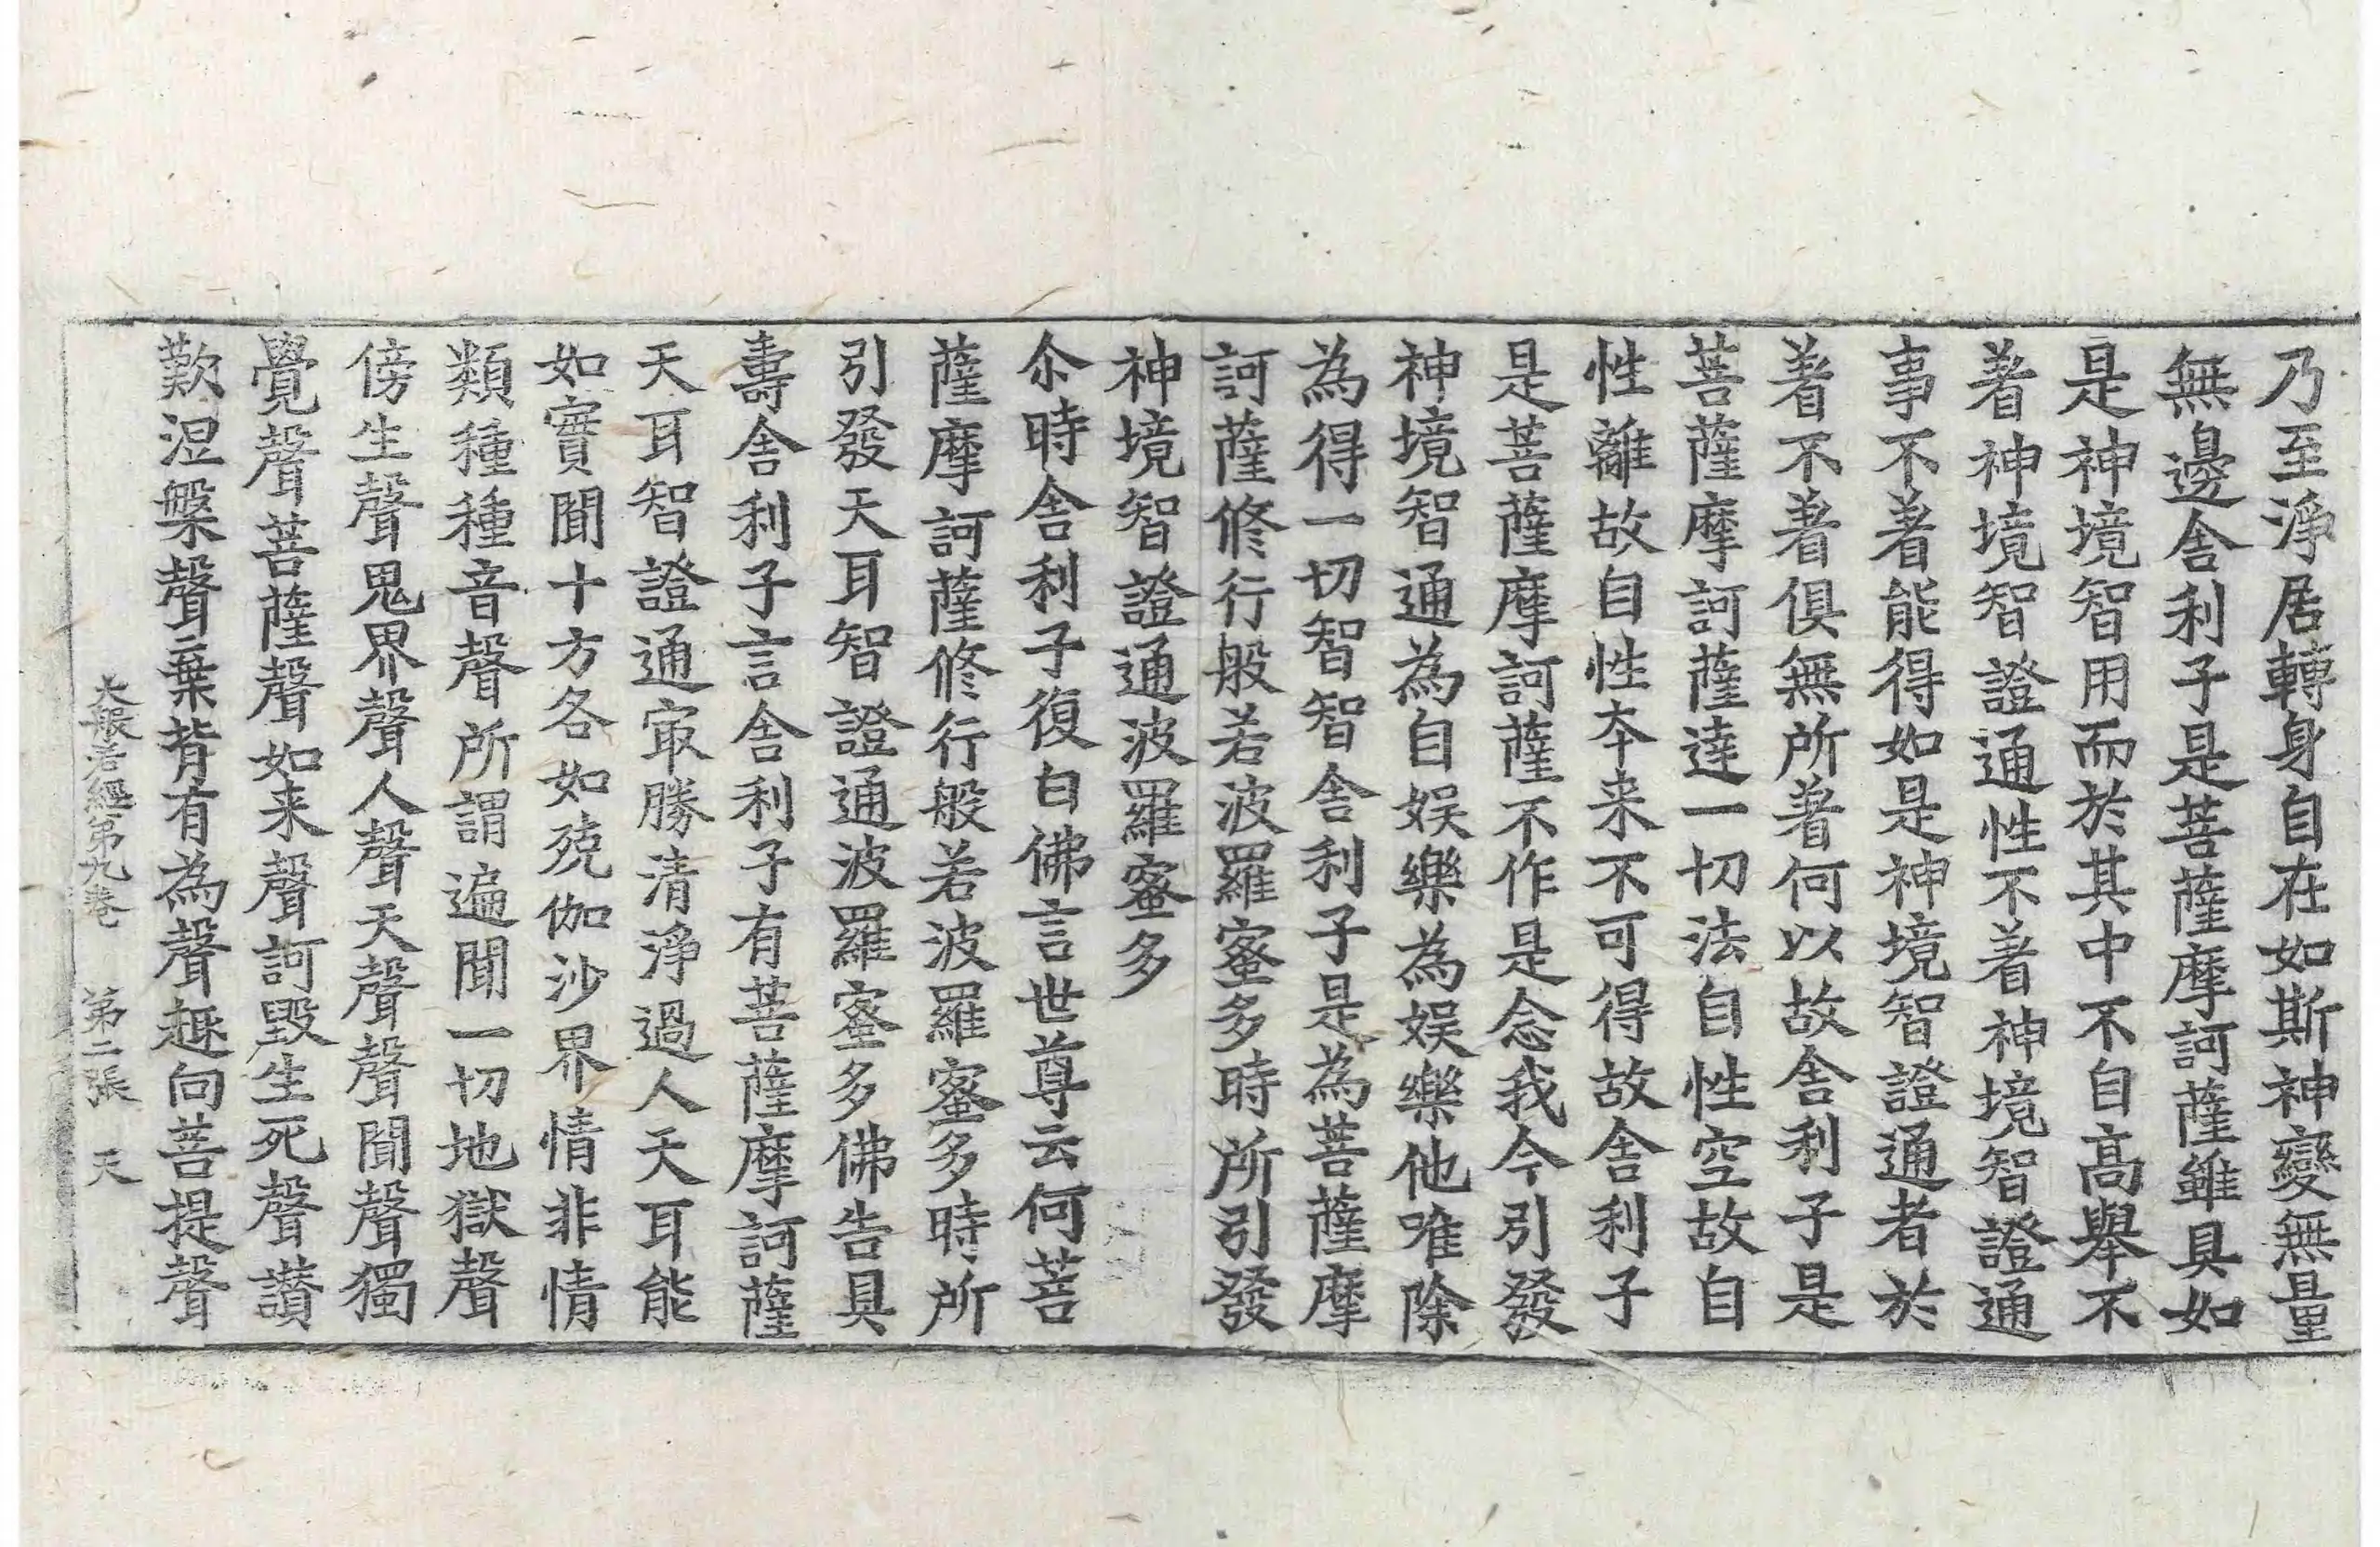 乃至淨居轉身自在如斯神變無量
無邊舍利子是菩薩摩訶薩雖具如
是神境智用而於其中不自高舉不
著神境智證通性不著神境智證通
事不著能得如是神境智證通者於
著不著俱無所著何以故舍利子是
菩薩摩訶薩達一切法自性空故自
性離故自性夲来不可得故舍利子
是菩薩摩訶薩不作是念我今引發
神境智通為自娱樂為娱樂他唯除
為得一切智智舍利子是為菩薩摩
訶薩修行般若波羅蜜多時所引發
神境智證通波羅蜜多
尒時舍利子復白佛言世尊云何菩
薩摩訶薩修行般若波羅蜜多時所
引發天耳智證通波羅蜜多佛告具
壽舍利子言舍利子有菩薩摩訶薩
天耳智證通㝡勝清淨過人天耳能
如實聞十方各如殑伽沙界情非情
類種種音聲所謂遍聞一切地獄聲
傍生聲鬼界聲人聲天聲聲聞聲獨
覺聲菩薩聲如来聲訶毀生死聲讃
歎涅槃聲棄背有為聲趣向菩提聲
大般若經第九卷　第二張　天